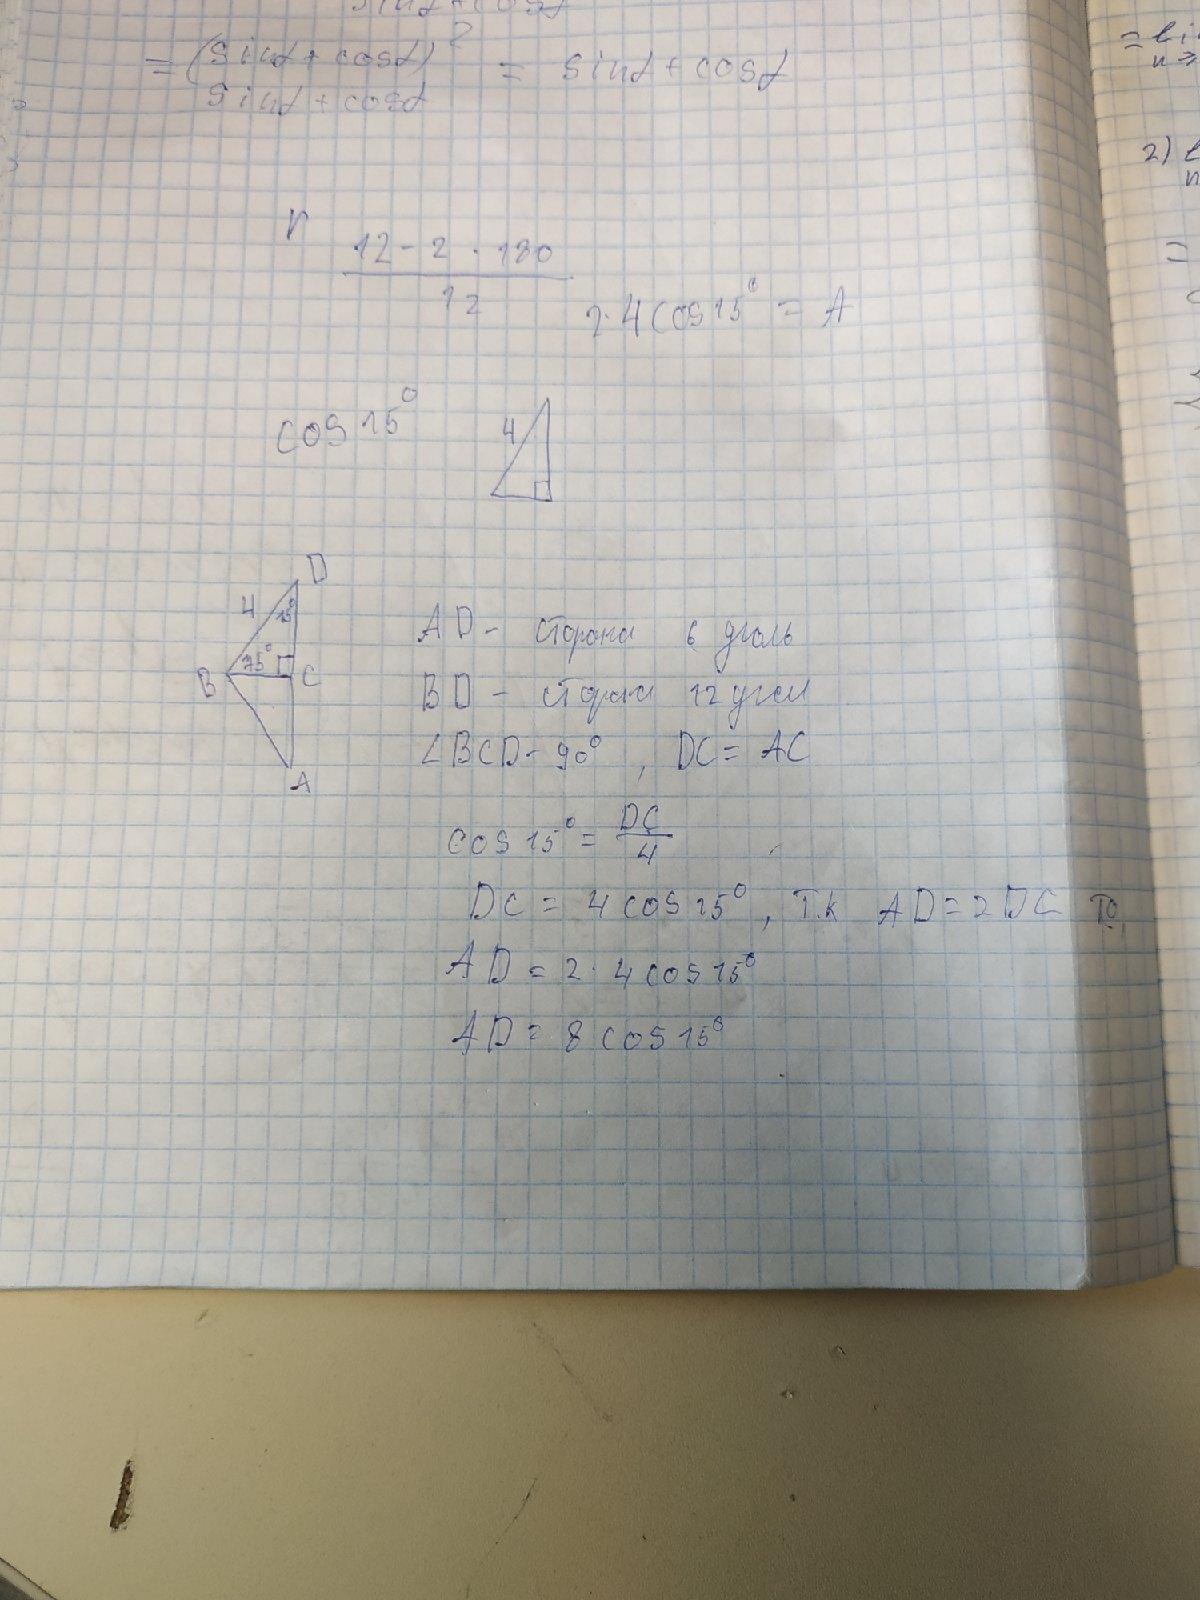 = (sinα + cosα)² = sinα + cosα
sinα + cosα
12 - 2 · 180
12
2·4cos15° = A
cos 15°
4
D
4
15°
75°
B
C
A
AD - сторона 6 уголь
BD - сторона 12 угол
∠BCD - 90° , DC = AC
cos 15° = DC
4
DC = 4 cos 15° , т.к AD = 2DC то,
AD = 2 · 4 cos 15°
AD = 8 cos 15°
2)